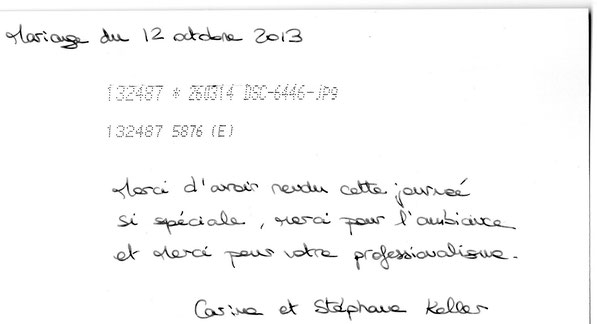 Mariage du 12 octobre 2013
132487 * 260314 DSC-6446-JP9
132487 5876 (E)
Merci d'avoir rendu cette journée
si spéciale, merci pour l'ambiance
et merci pour votre professionalisme.
Carine et Stéphane Keller